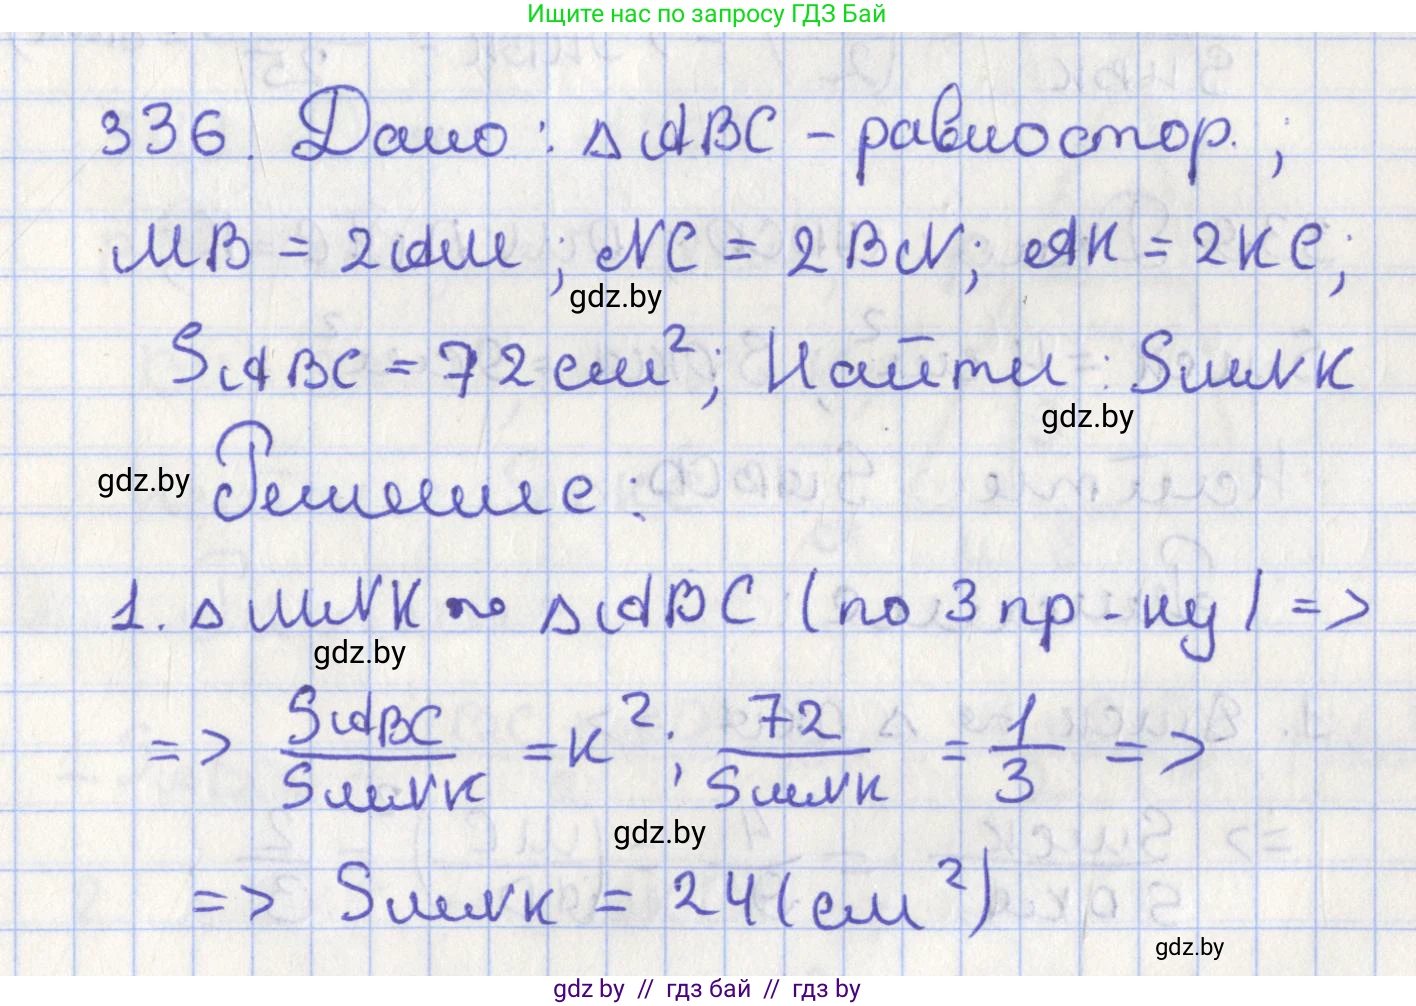 Ищите нас по запросу ГДЗ Бай
336. Дано: △ABC – равностор.;
MB = 2AM; NC = 2BN; AK = 2KC;
gdz.by
SABC = 72 см²; Найти: SMNK
gdz.by
gdz.by
Решение:
1. △MNK ~ △ABC (по 3 пр-ку) =>
gdz.by
=> SABC/SMNK = k²; 72/SMNK = 1/3 =>
gdz.by
=> SMNK = 24 (см²)
gdz.by
gdz by // гдз бай // гдз by